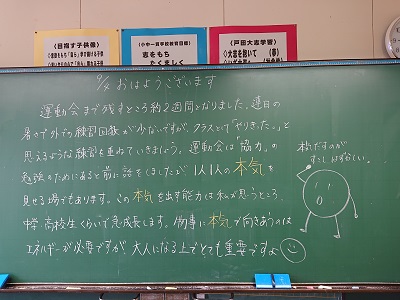 《目指す子供像》
小中一貫学校教育目標
志をもち
たくましく
《戸田大志学習》
9/2 おはようございます
運動会まで残すところ約2週間となりました。連日の
暑さで外での練習回数が少ないですが、クラスとして「やりきった。」と
思えるような練習を重ねていきましょう。運動会は「協力」の
勉強のためにあると前に話をしましたが 1人1人の本気を
見せる場でもあります。この本気を出す能力は私が思うところ、
中学・高校生くらいで急成長します。何事に本気で向きあうのは
エネルギーが必要ですが、大人になる上でとても重要ですよ
本気だすのが
すこしはずかしい。